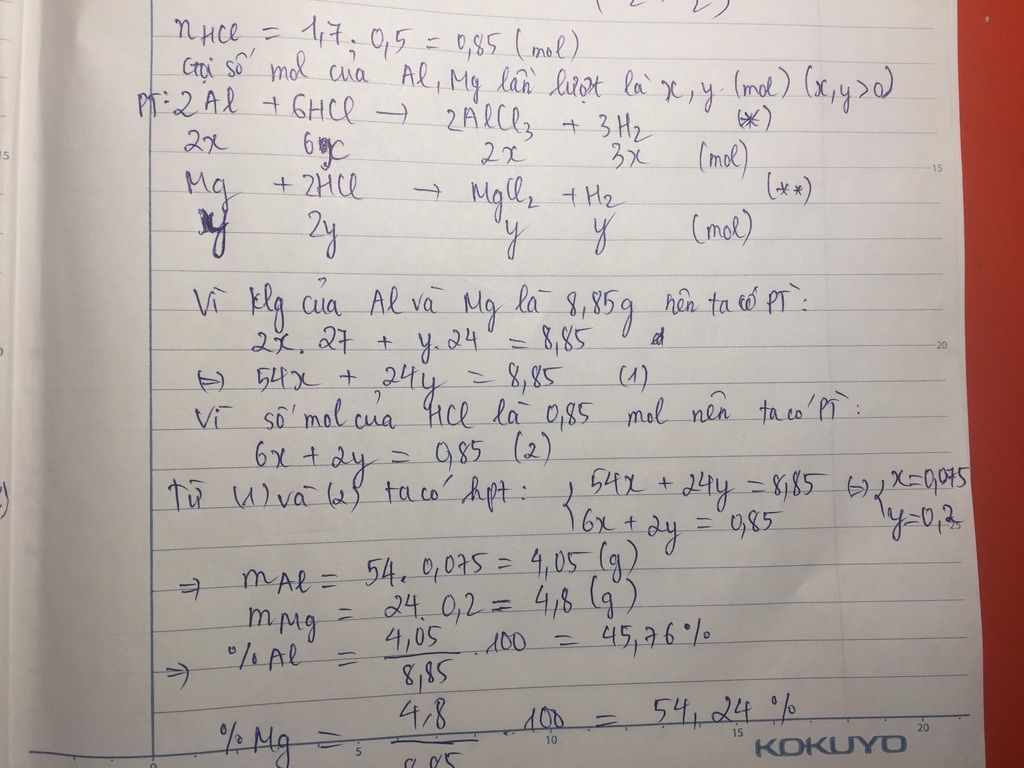 nHCl = 1,7 . 0,5 = 0,85 (mol)
Gọi số mol của Al, Mg lần lượt là x, y (mol) (x,y>0)
PT: 2Al + 6HCl → 2AlCl3 + 3H2 (*)
2x 6x 2x 3x (mol)
Mg + 2HCl → MgCl2 + H2 (**)
y 2y y y (mol)
Vì klg của Al và Mg là 8,85g nên ta có PT:
2x. 27 + y. 24 = 8,85
⇔ 54x + 24y = 8,85 (1)
Vì số mol của HCl là 0,85 mol nên ta có PT:
6x + 2y = 0,85 (2)
Từ (1) và (2) ta có hpt: { 54x + 24y = 8,85 ⇔ { x=0,075
6x + 2y = 0,85 y=0,2
⇒ mAl = 54. 0,075 = 4,05 (g)
mMg = 24. 0,2 = 4,8 (g)
⇒ %Al = 4,05/8,85 . 100 = 45,76 %
%Mg = 4,8/8,85 . 100 = 54,24 %
15
20
5 10 15 20
KOKUYO